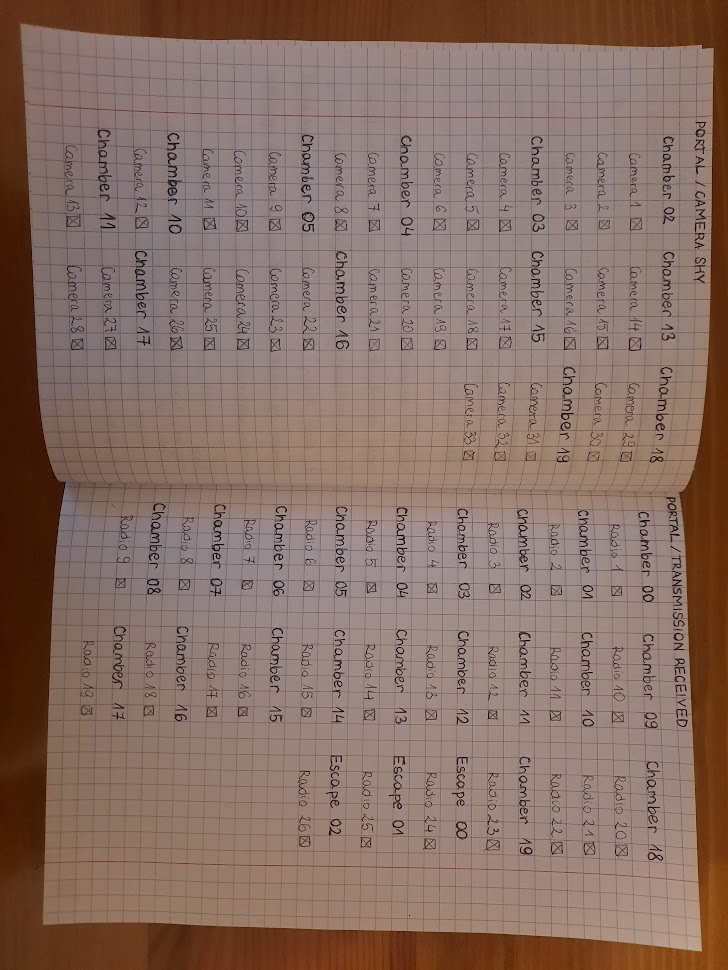 PORTAL / CAMERA SHY
Chamber 02
Camera 1 ☒
Camera 2 ☒
Camera 3 ☒
Chamber 03
Camera 4 ☒
Camera 5 ☒
Camera 6 ☒
Chamber 04
Camera 7 ☒
Camera 8 ☒
Chamber 05
Camera 9 ☒
Camera 10 ☒
Camera 11 ☒
Chamber 10
Camera 12 ☒
Chamber 11
Camera 13 ☒
Chamber 13
Camera 14 ☒
Camera 15 ☒
Camera 16 ☒
Chamber 15
Camera 17 ☒
Camera 18 ☒
Camera 19 ☒
Camera 20 ☒
Camera 21 ☒
Chamber 16
Camera 22 ☒
Camera 23 ☒
Camera 24 ☒
Camera 25 ☒
Camera 26 ☒
Chamber 17
Camera 27 ☒
Camera 28 ☒
Chamber 18
Camera 29 ☒
Camera 30 ☒
Chamber 19
Camera 31 ☒
Camera 32 ☒
Camera 33 ☒
PORTAL / TRANSMISSION RECEIVED
Chamber 00
Radio 1 ☒
Chamber 01
Radio 2 ☒
Chamber 02
Radio 3 ☒
Chamber 03
Radio 4 ☒
Chamber 04
Radio 5 ☒
Chamber 05
Radio 6 ☒
Chamber 06
Radio 7 ☒
Chamber 07
Radio 8 ☒
Chamber 08
Radio 9 ☒
Chamber 09
Radio 10 ☒
Chamber 10
Radio 11 ☒
Chamber 11
Radio 12 ☒
Chamber 12
Radio 13 ☒
Chamber 13
Radio 14 ☒
Chamber 14
Radio 15 ☒
Chamber 15
Radio 16 ☒
Radio 17 ☒
Chamber 16
Radio 18 ☒
Chamber 17
Radio 19 ☒
Chamber 18
Radio 20 ☒
Radio 21 ☒
Radio 22 ☒
Chamber 19
Radio 23 ☒
Escape 00
Radio 24 ☒
Escape 01
Radio 25 ☒
Escape 02
Radio 26 ☒